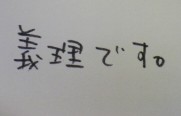 義理です。